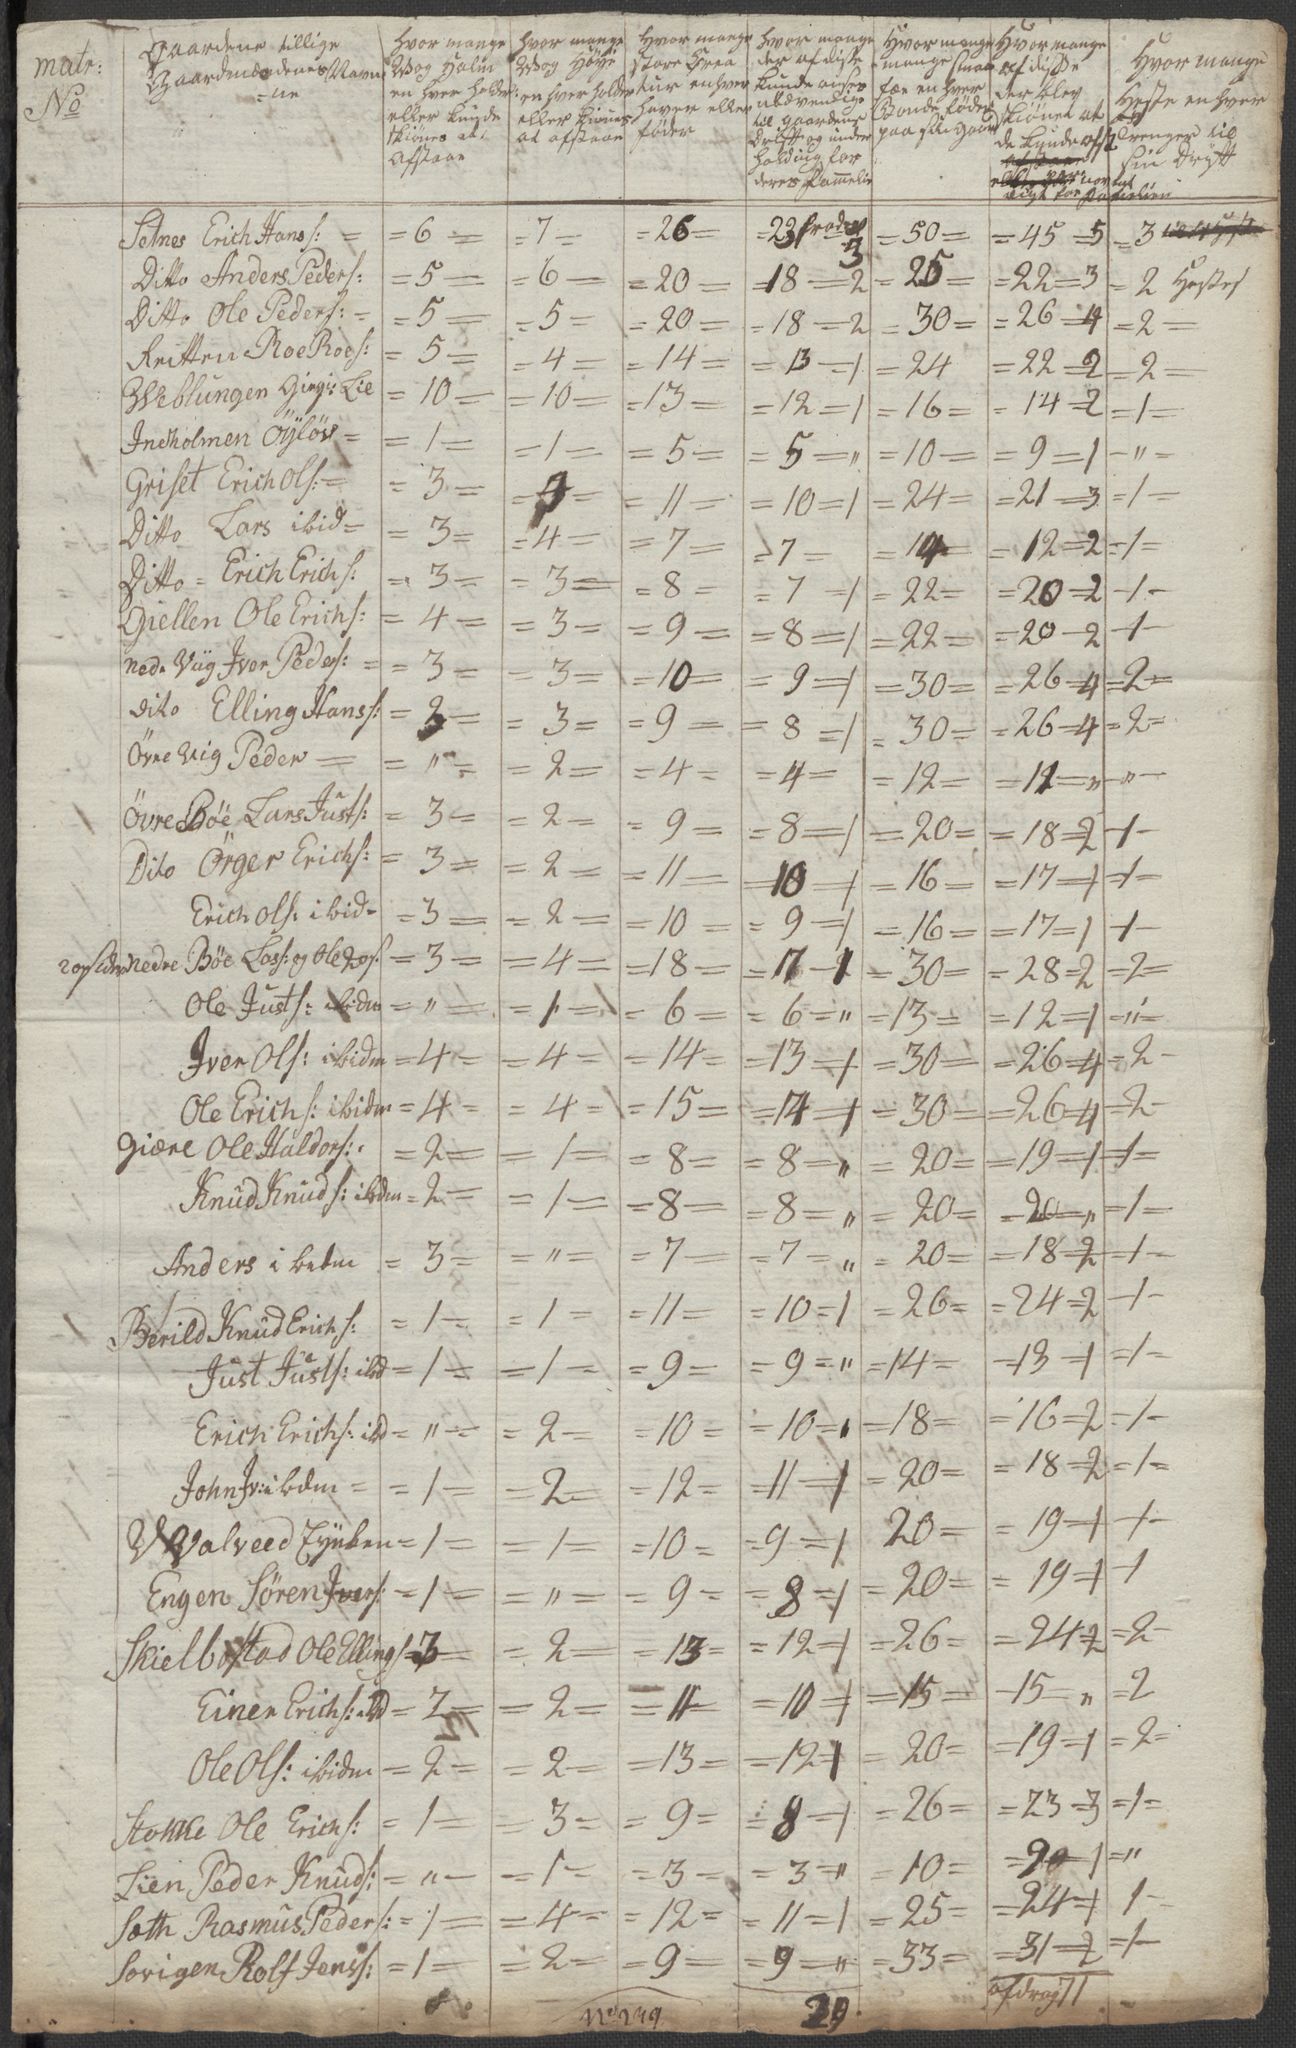 matr:
No
Gaardene tillige
Gaardmændenes Navne
hvor mange
Wog Halm
en hver holder
eller kunde
skiönes at
Afstaae
hvor mange
Wog Höye
en hver holder
eller kunde
at afstaae
Hvor mange
store Crea
tur enhver
haver eller
föder
hvor mange
der af disse
kunde anses
nödvendige
til gaardens
Drift og under
holding for
deres Fammelie
Hvor mange
smaa
fæe en hver
Bonde föder
paa sin Gaard
Hvor mange
af disse
der blev
skiönet at
de kunde afst
Hvor mange
Heste enhver
trenger til
sin Drift
Setnes Erich Hans: = = 6 = = 7 = = 26 = = 23 fradrag 3 = 50 = = 45 = 5 = 3
Ditto Anders Peders: = 5 = = 6 = = 20 = = 18 = 2 = 25 = = 22 = 3 = 2 Hester
Ditto Ole Peders: = = 5 = = 5 = = 20 = = 18 = 2 = 30 = = 26 = 4 = 2 =
Kritten Roe Roes: = 5 = = 4 = = 14 = = 13 = 1 = 24 = 22 = 2 = 2 =
Weblungen Giegs: Lie = 10 = = 10 = = 13 = = 12 = 1 = 16 = = 14 = 2 = 1 =
Indholmen Öÿlöv = = 1 = = 1 = = 5 = = 5 = " = 10 = = 9 = 1 = " =
Griset Erich Ols: = = 3 = = 4 = = 11 = = 10 = 1 = 24 = = 21 = 3 = 1 =
Ditto Lars ibid = = 3 = = 4 = = 7 = = 7 = = 14 = = 12 = 2 = 1 =
Ditto = Erich Erichs: = 3 = = 3 = = 8 = = 7 = 1 = 22 = = 20 = 2 - 1 -
Giellen Ole Erichs: = 4 = = 3 = = 9 = = 8 = 1 = 22 = = 20 - 2 - 1 -
nedr Viig Iver Peders: = = 3 = = 3 = = 10 = = 9 = 1 = 30 = = 26 = 4 = 2 =
dito Elling Hans: = 2 = = 3 = = 9 = = 8 = 1 = 30 = = 26 = 4 = 2 =
Övre Vig Peder = = " = = 2 = = 4 = = 4 = = 12 = = 12 = " = " =
Övre Böe Lars Justs: = 3 = = 2 = = 9 = = 8 = 1 = 20 = = 18 = 2 - 1 -
Dito Örger Erichs: = 3 = = 2 = = 11 = = 10 = 1 = 16 = = 17 = 1 - 1 -
Erich Ols: ibid = = 3 = = 2 = = 10 = = 9 = 1 = 16 = = 17 = 1 - 1 -
nedre Böe Lars: og Ole = 3 = = 4 = = 18 = = 17 - 1 = 30 = = 28 = 2 = 2 =
Ole Justs: ibidm = " = = 1 = = 6 = = 6 = " = 13 = = 12 = 1 = " =
Iver Ols: ibidm = 4 = = 4 = = 14 = = 13 = 1 = 30 = = 26 = 4 = 2 -
Ole Erichs: ibidm = 4 = = 4 = = 15 = = 14 = 1 = 30 = = 26 = 4 = 2 -
Giære Ole Haldors: = 2 = = 1 = = 8 = = 8 = " = 20 = = 19 = 1 = 1 =
Knud Knuds: ibdm = 2 = = 1 = = 8 = = 8 = " = 20 = = 20 = " = 1 =
Anders ibidm = 3 = = " = = 7 = = 7 = " = 20 = = 18 = 2 = 1 =
Berild Knud Erichs: = 1 = = 1 = = 11 = = 10 = 1 = 26 = = 24 = 2 - 1 -
Just Justs: ibd = 1 = = 1 = = 9 = = 9 = " = 14 = - 13 = 1 = 1 -
Erich Erichs: ibd = " = = 2 = = 10 = = 10 = " = 18 = = 16 = 2 = 1 -
John Iv: ibdm = = 1 = = 2 = = 12 = = 11 = 1 = 20 = = 18 = 2 = 1 =
Walveed = 1 = = 1 = = 10 = = 9 = 1 20 = = 19 = 1 - 1 -
Engen Sören Ivers: = 1 = = " = = 9 = = 8 = 1 = 20 = = 19 = 1 - 1
Skielbostad Ole Ellings = 3 = = 2 = = 13 = = 12 = 1 = 26 = = 24 = 2 = 2 -
Einer Erichs: ibd = 2 = = 2 = = 11 = = 10 = 1 = 15 = - 15 = " = 2
Ole Ols: ibidm = 2 = = 2 = = 13 = = 12 = 1 = 20 = = 19 = 1 = 2 =
Stokke Ole Erichs: = 1 = = 3 = = 9 = = 8 = 1 = 26 = = 23 = 3 = 1 =
Lien Peder Knuds: = " = = 1 = = 3 = = 3 = " = 10 = = 1 = "
Soth Rasmus Peders: = 1 = = 4 = = 12 = = 11 = 1 = 25 = = 24 = 1 1 -
Sorigen Rolf Jens: = 1 = = 2 = = 9 = = 9 = " = 33 = = 31 = 2 = 1 -
29
afdrag 71